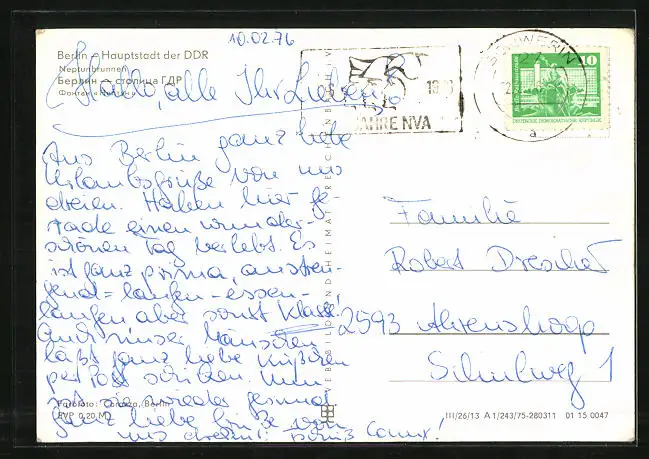 10.02.76
Berlin - Hauptstadt der DDR
Neptunbrunnen
Берлин — столица ГДР
Фонтан «Нептун»
Hallo, alle Ihr Lieben!
Aus Berlin ganz liebe
Urlaubsgrüße von uns
dreien. Haben hier ge-
rade einen wunder-
schönen Tag verlebt. Es
ist ganz prima, anstren-
gend = laufen - essen -
laufen aber sonst Klasse!
Auch unser
läßt ganz liebe
per Post schicken. Nun
ist sie wieder gesund
Ganz liebe Grüße von
uns dreien!
Farbfoto: Berlin
EVP 0,20 M
BILD UND HEIMAT REICHENBACH
JAHRE NVA
SCHWERIN
a
10
DEUTSCHE DEMOKRATISCHE REPUBLIK
Familie
Robert Drescher
2593 Ahrenshoop
Schulweg 1
III/26/13 A 1/243/75-280311 01 15 0047